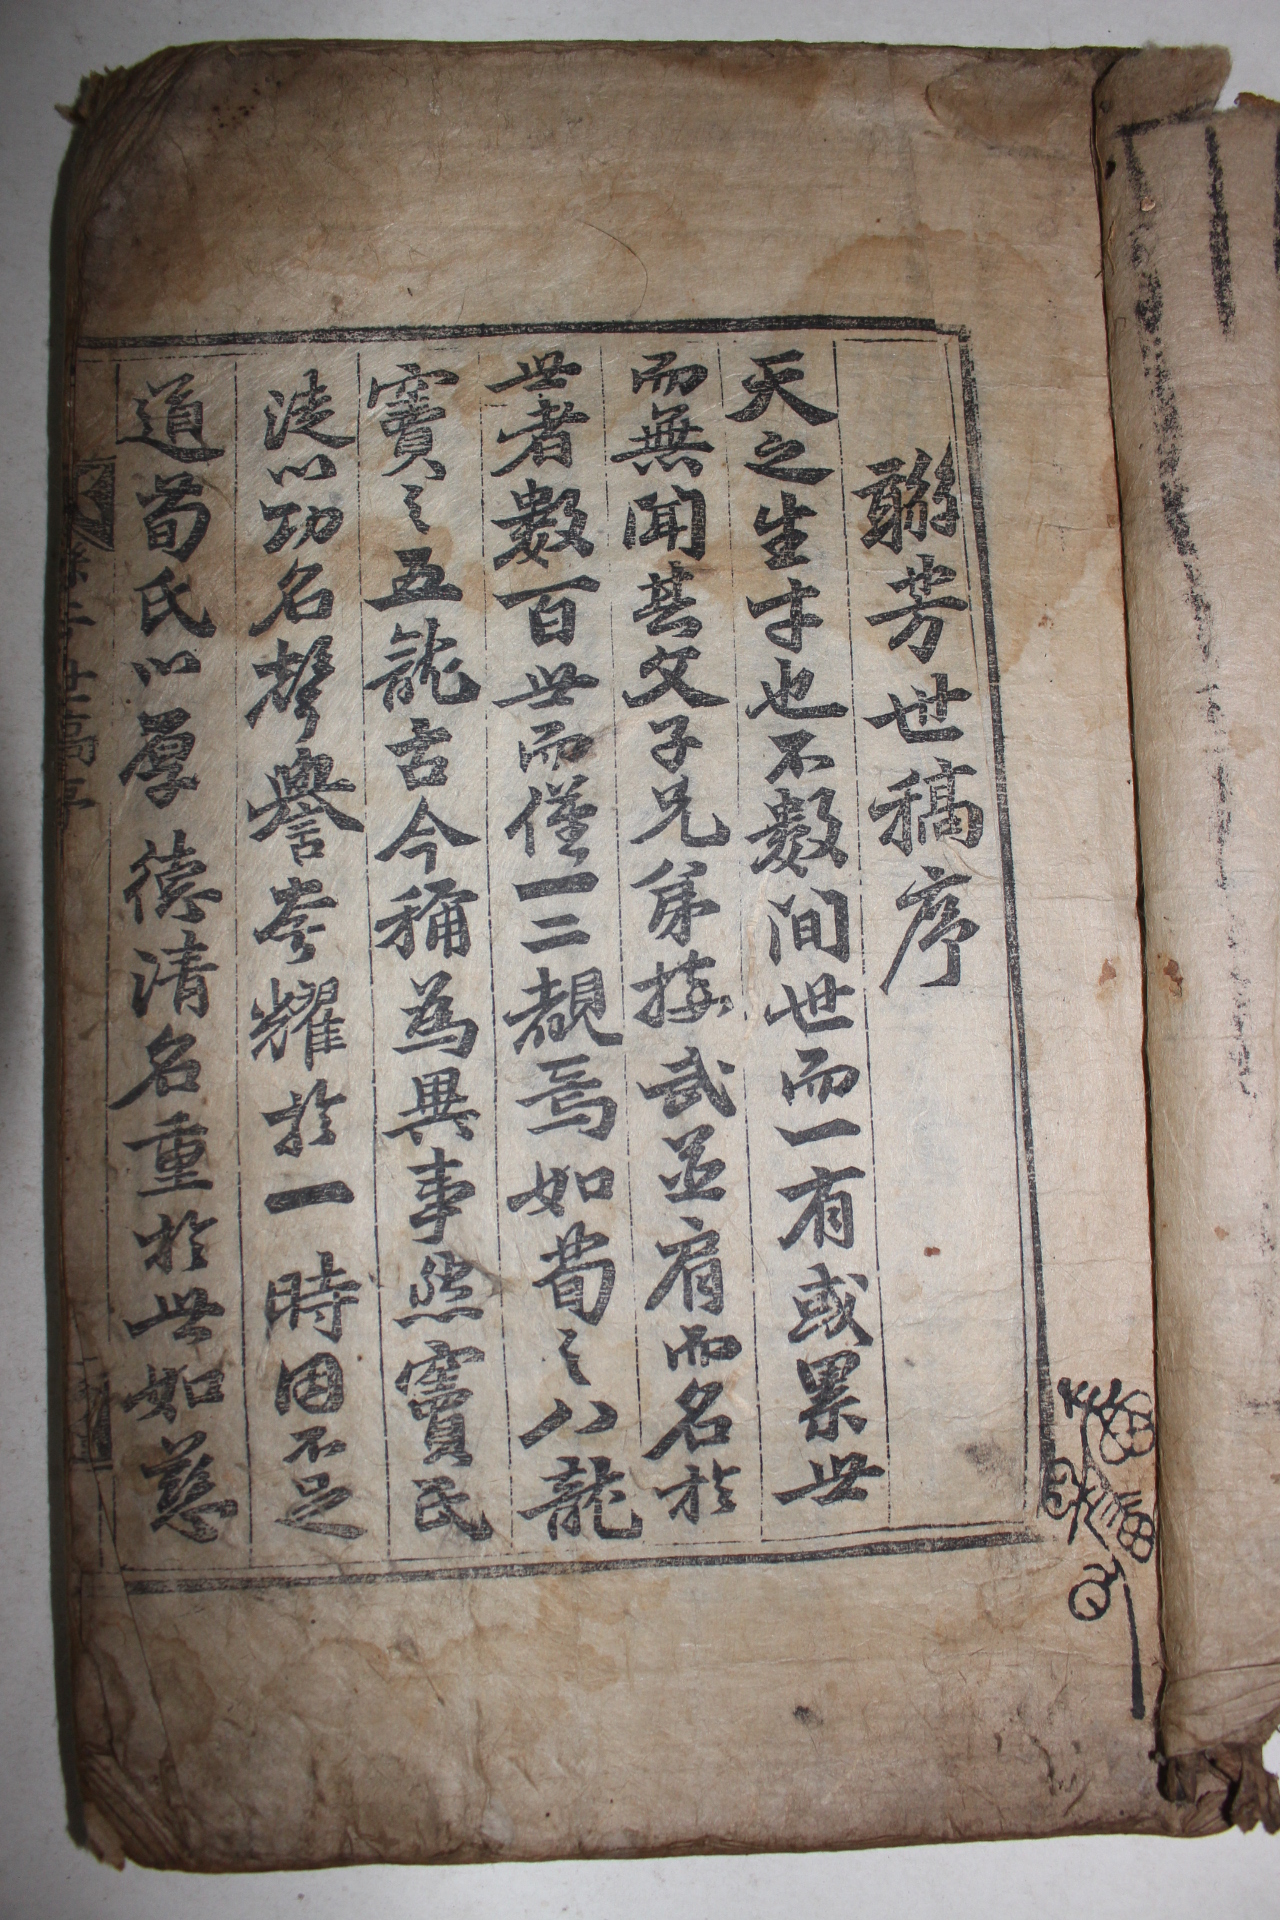 聯芳世稿序
天之生才也不數間世而一有或累世
而無聞其父子兄弟接武並肩而名於
世者數百世而僅一二覩焉如荀之八龍
竇之五龍古今稱為異事然竇氏
徒以功名聲譽夸耀於一時固不足
道荀氏以厚德清名重於世如慈
聯芳世稿序